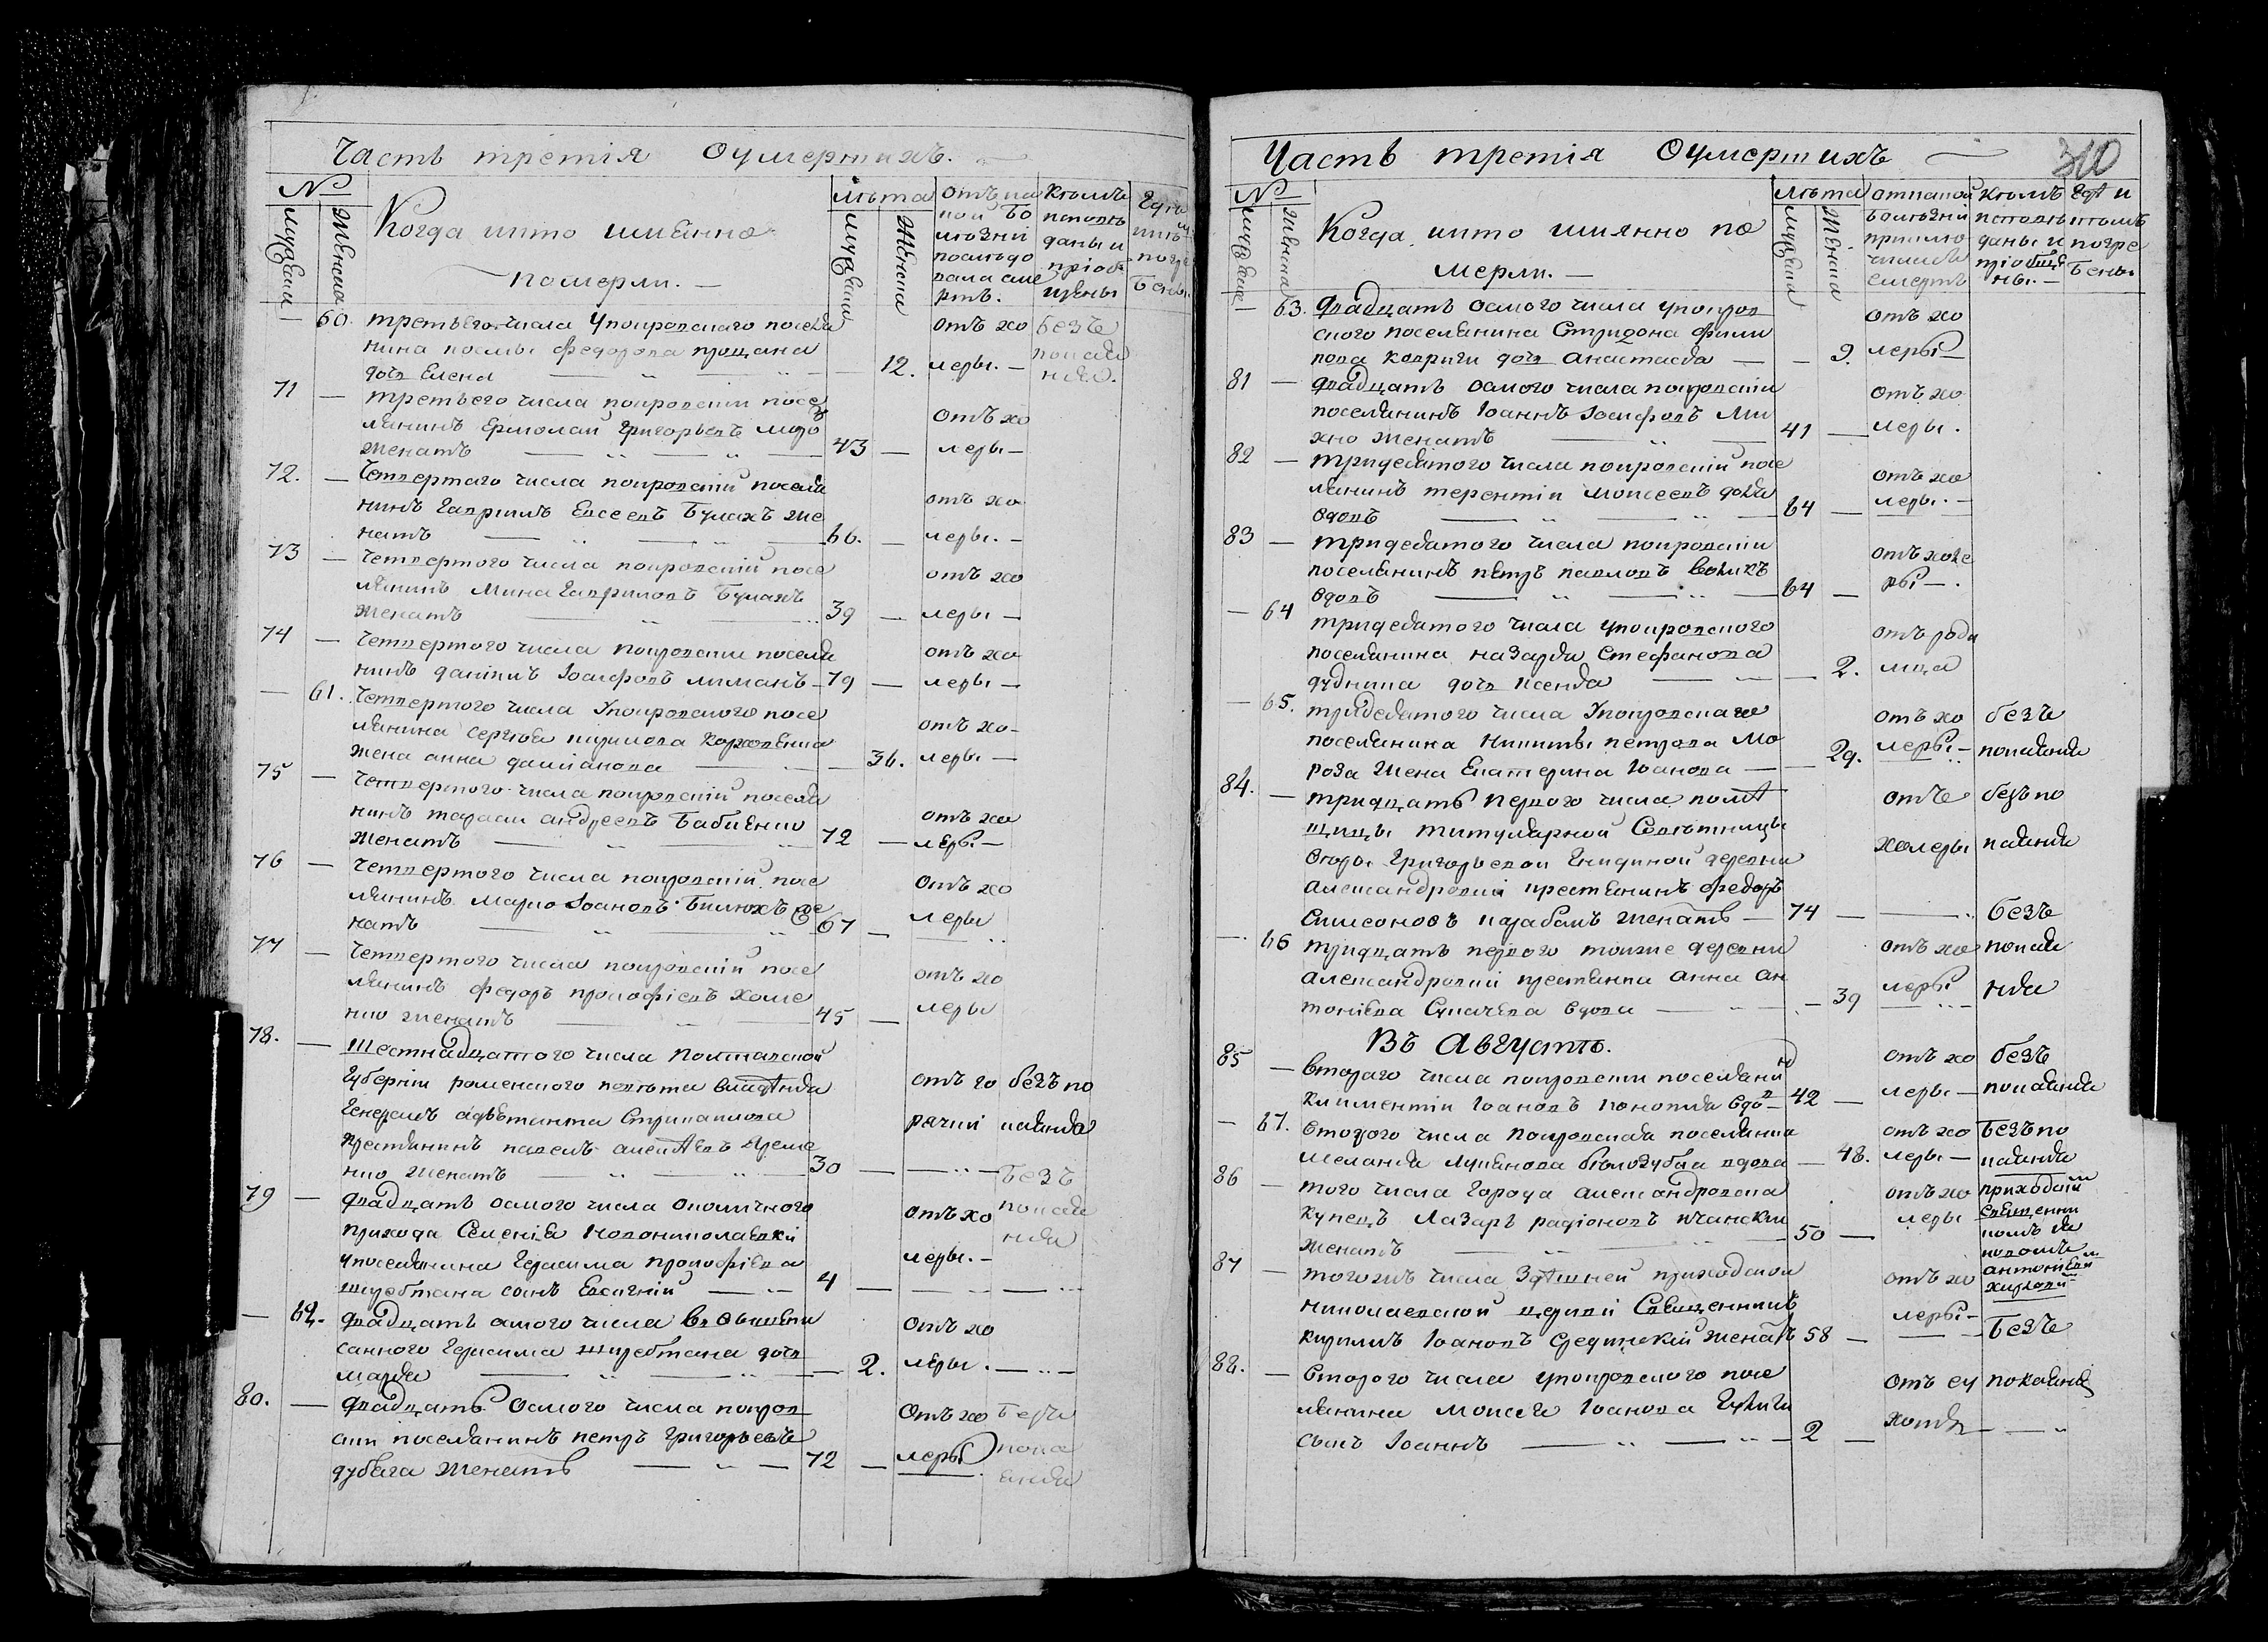 Часть третія Оумершихъ.
№
мужеска
Женска
Когда икто имѣнно
померли.
лѣта
мужеска
Женска
Отъ ка
кой бо
лѣзни
послѣдо
вала сме
рть.
Кѣмъ
исповѣ
даны и
пріоб
щены
60. третьего числа упокровскаго посел
нина Федорова
дочь Елена — 12.
отъ хо
леры.
безъ
покая
нія.
71 третьего числа покровскій посе
лянинъ Ермолай Григорьевъ
Женатъ — 43
отъ хо
леры
72. Четвертаго числа покровскій поселя
нинъ Гавріилъ Евсеевъ Булахъ же
натъ — 66.
отъ хо
леры.
73 Четвертого числа покровскій посе
лянинъ Мина Гавриловъ Булахъ
Женатъ — 39
отъ хо
леры
74 Четвертого числа покровскій поселя
нинъ Даніилъ Іосифовъ лиманъ — 79
отъ хо
леры
61. Четвертого числа Упокровского посе
лянина Сергѣя кирилова
жена анна даміанова — 36.
отъ хо
леры
75 Четвертого числа покровскій поселя
нинъ тарасій андреевъ Бабиенко
Женатъ — 72
отъ хо
леры
76 Четвертого числа покровскій посе
лянинъ Марко Іоановъ же
натъ — 67
отъ хо
леры
77 Четвертого числа покровскій посе
лянинъ Федоръ прокофіевъ Хоме
нко Женатъ — 45
отъ хо
леры
78. Шестнадцатого числа Полтавской
Губерніи роменского повѣта владѣнія
Генералъ адъютанта
крестянинъ павелъ алексѣевъ Яреме
нко Женатъ — 30
отъ го
рячки
безъ по
каянія
79 двадцать осмого числа
прихода Селенія Новониколаевки
упоселянина Герасима прокофіева
шкребтана сынъ Евсигній — 4
отъ хо
леры.
безъ
покая
нія
62. двадцать осмого числа
санного Герасима шкребтана дочь
марія — 2.
отъ хо
леры.
80. двадцать осмого числа покров
скій поселянинъ петръ Григорьевъ
дубяга Женатъ — 72
Отъ хо
леры
безъ
пока
янія
Часть третія Оумершихъ
310
№
мужеска
Женска
Когда икто имянно по
мерли.
лѣта
мужеска
Женска
откакой
болѣзни
приклю
чилась
смерть
Кѣмъ
исповѣ
даны и
пріобще
ны.
Гдѣ и
кѣмъ
погре
бены
63. двадцать осмого числа упокров
ского поселянина Спиридона фили
пова ковриги дочь Анастасія — 9.
отъ хо
леры
81 двадцать осмого числа покровскій
поселянинъ Іоаннъ Іосифовъ Ми
хно Женатъ — 41
отъ хо
леры.
82 тридесятого числа покровскій посе
лянинъ терентій Моисеевъ
вдовъ — 64
отъ хо
леры.
83 тридесятого числа покровскій
поселянинъ петръ павловъ Воликъ
вдовъ — 64
отъ холе
ры
64 тридесятого числа упокровского
поселянина Назарія Стефанова
дудника дочь Ксенія — 2.
отъ роди
мца
65. тридесятого числа Упокровскаго
поселянина Никиты петрова Мо
роза Жена Екатерина Іоанова — 29.
отъ хо
леры
безъ
покаянія
84. тридцать первого числа помѣ
щицы титулярной Совѣтницы
Федоры Григорьевой деревни
александровки крестянинъ Федоръ
Симеоновъ Женатъ — 74
отъ
холеры
безъ по
каянія
66 тридцать первого тойже деревни
александровки крестянка Анна ан
тоніева вдова — 39
отъ хо
леры
безъ
покая
нія
Въ Августѣ.
85 втораго числа покровскій поселянинъ
климентій Іоановъ вдовъ — 42
отъ хо
леры
безъ
покаянія
67. второго числа Покровская поселянка
Меланія Лукянова бѣлозубка вдова — 48.
отъ хо
леры
безъ по
каянія
86 того числа города александровска
купецъ Лазарь радіоновъ
Женатъ — 50
отъ хо
леры
приходскимъ
священни
комъ
антоніемъ
87 тогожъ числа Здѣшней приходской
николаевской церкви Священникъ
кирилъ Іоановъ Срединскій Женатъ 58
отъ хо
леры
безъ
88. второго числа упокровского посе
лянина Моисея Іоанова
сынъ Іоаннъ — 2
отъ су
хотъ
покаянія